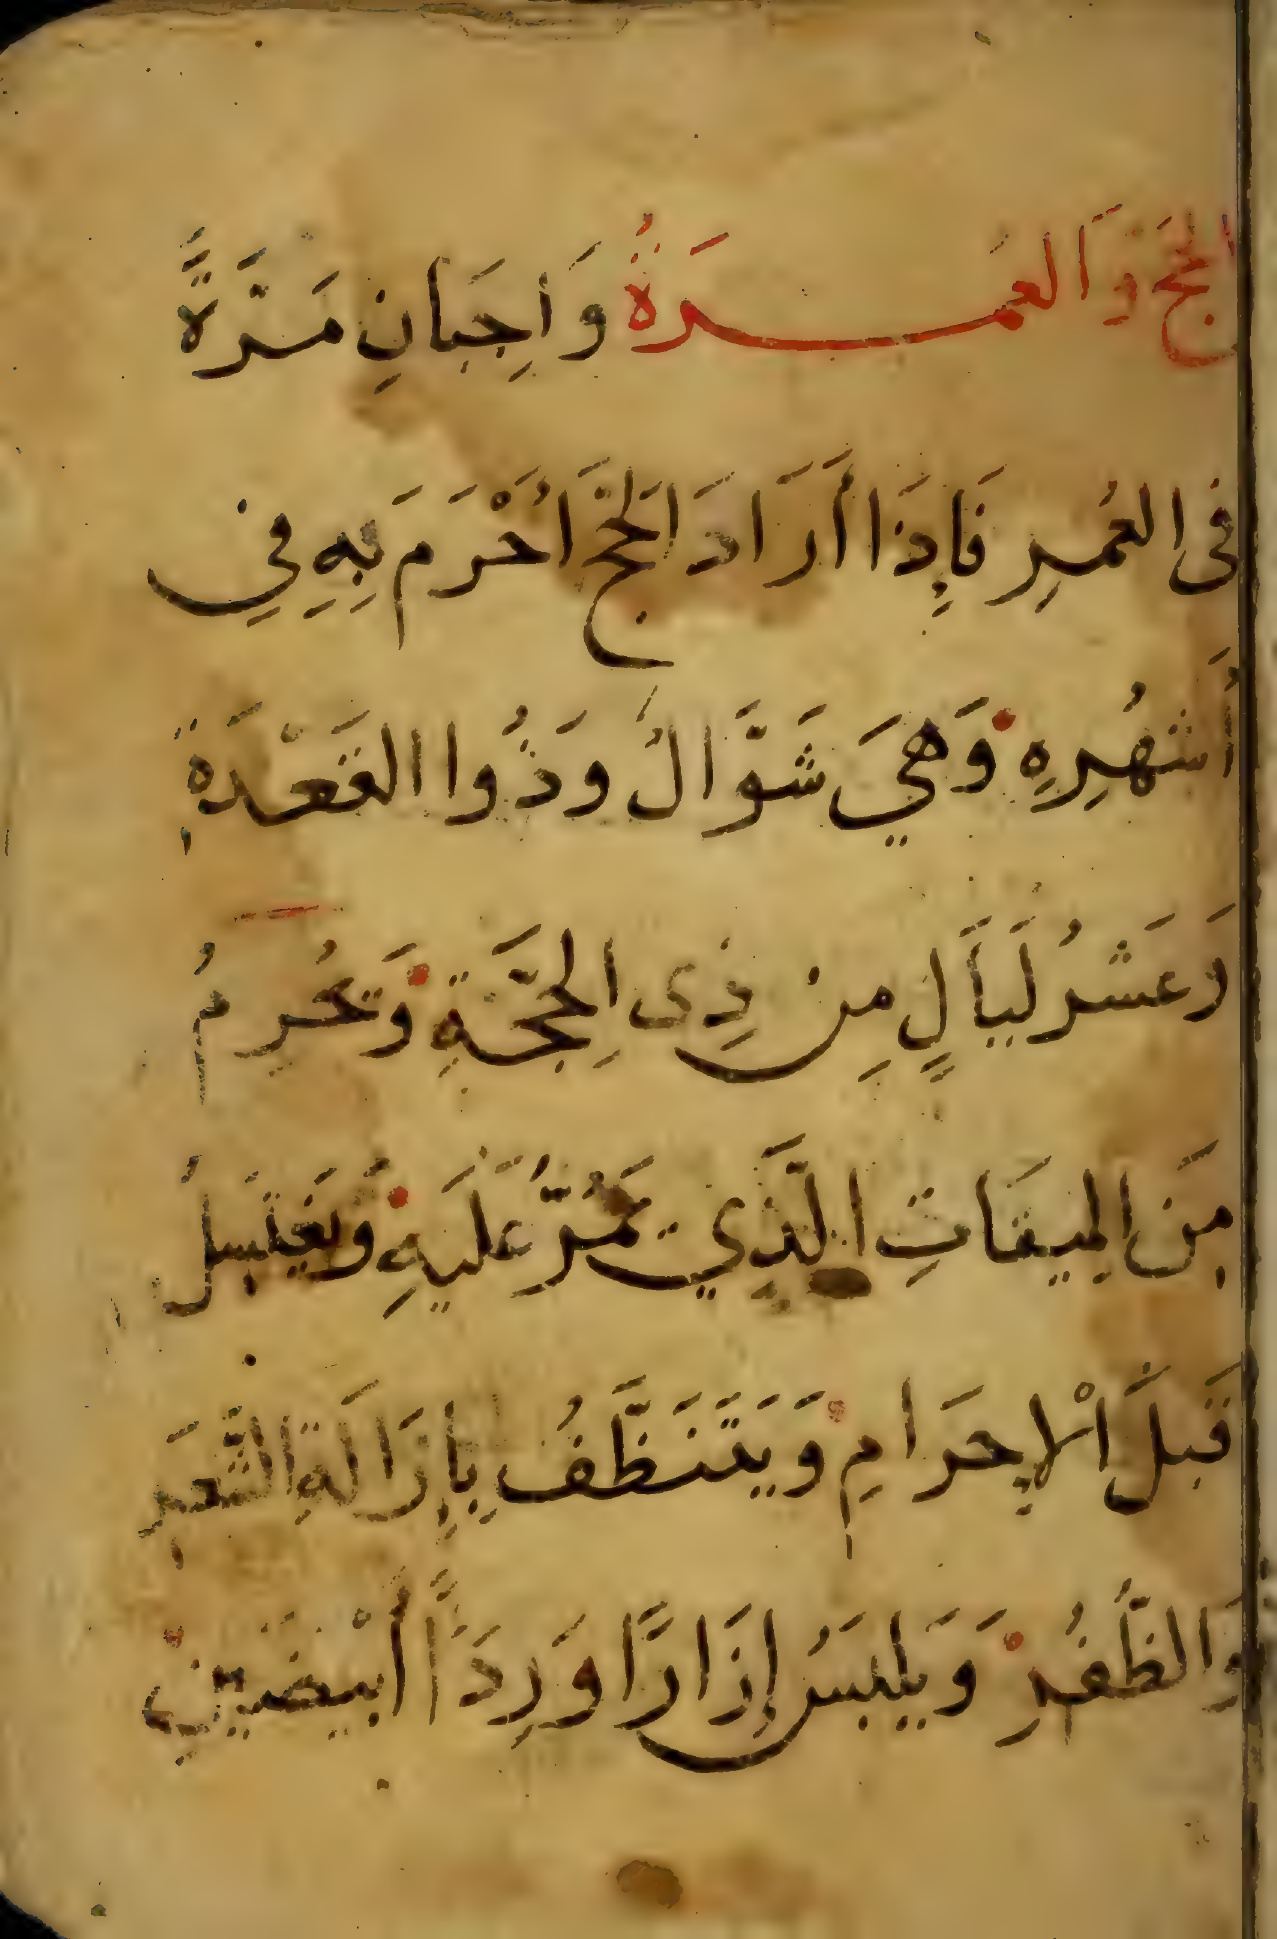 الحَجُّ وَالعُمرَةُ وَاجِبَانِ مَرَّةً
فى العُمرِ فَإِذَا أَرَادَ الحَجَّ أَحْرَمَ بِهِ فِي
أَشهُرِهِ وَهِيَ شَوَّالُ وَذُوا القَعْدَةِ
وَعَشرُ لَيَالٍ مِن ذِى الحِجَّةِ وَيَحُرِمُ
مِنَ المِيقَاتِ الَّذِي يَمُرُّ عَلَيهِ وَيَغتَسِلُ
قَبلَ الْإِحرَامِ وَيَتَنَظَّفُ بِإِزَالَةِ الشَّعَرِ
وَالظُّفُرِ وَيَلبَسُ إِزَارًا وَرِدَاً أَبْيَضَينِ